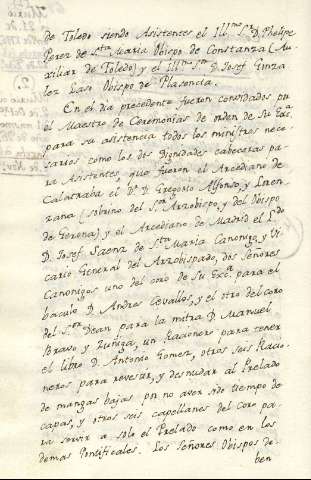 de Toledo siendo Asistentes el Ill.mo S.r D. Phelipe
Perez de S.ta Maria Obispo de Constanza (Au-
xiliar de Toledo) y el Ill.mo S.or D. Josef Gonza
lez Laso Obispo de Plasencia.
En el dia precedente fueron convidados pr
el Maestro de Ceremonias de orden de Su Exc.a
para su asistencia todos los ministros nece-
sarios como los dos Dignidades cabeceras pa
ra Asistentes, que fueron el Arcediano de
Calatraba el D. Gregorio Alfonso, y Loren-
zana (sobrino del S.or Arzobispo, y del Obispo
de Gerona) y el Arcediano de Madrid el L.do
D. Josef Saenz de S.ta Maria Canonigo, y Vi
cario General del Arzobispado, dos Señores
Canonigos uno del coro de su Exc.a para el
baculo D. Andres Cevallos, y el otro del coro
del S.or Dean para la mitra D. Manuel
Bravo y Zuñiga, un Racionero para tener
el libro D. Antonio Gomez, otros seis Racio-
neros para revestir, y desnudar al Prelado
de mangas bajas pr no aver sido tiempo de
capas, y otros seis capellanes del coro pa-
ra servir a solo el Prelado como en los
demas Pontificales. Los Señores Obispos de-
ben